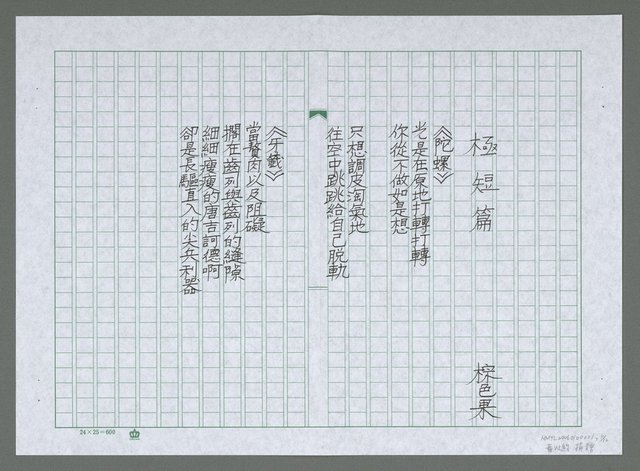 極短篇
棕色果
《陀螺》
光是在原地打轉打轉
你從不做如是想
只想調皮淘氣地
往空中跳跳給自己脫軌
《牙籤》
當贅肉以及阻礙
擱在齒列與齒列的縫隙
細細瘦瘦的唐吉訶德啊
卻是長驅直入的尖兵利器
24×25=600